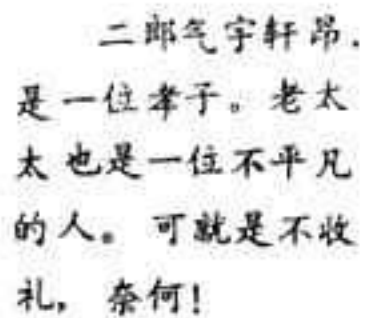 二郎气宇轩昂.
是一位孝子。老太
太也是一位不平凡
的人。可就是不收
礼，奈何！